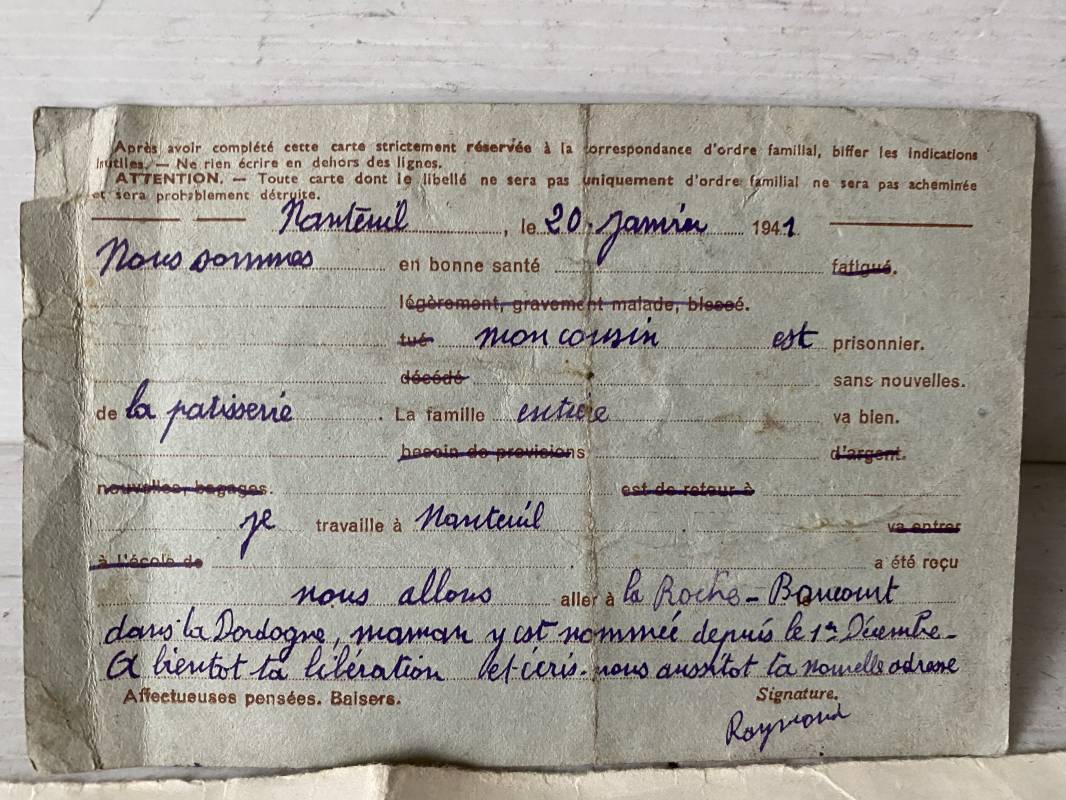 Après avoir complété cette carte strictement réservée à la correspondance d'ordre familial, biffer les indications
inutiles. — Ne rien écrire en dehors des lignes.
ATTENTION. — Toute carte dont le libellé ne sera pas uniquement d'ordre familial ne sera pas acheminée
et sera probablement détruite.
Nanteuil, le 20 janvier 1941
Nous sommes en bonne santé fatigué.
légèrement, gravement malade, blessé.
tué mon cousin est prisonnier.
décédé sans nouvelles.
de la patisserie. La famille entière va bien.
besoin de provisions d'argent.
nouvelles, bagages. est de retour à
je travaille à Nanteuil va entrer
à l'école de a été reçu
nous allons aller à la Roche-Baucourt
dans la Dordogne, maman y est nommée depuis le 1er Décembre-
A bientot ta libération et écris-nous aussitot ta nouvelle adresse
Affectueuses pensées. Baisers. Signature.
Raymond